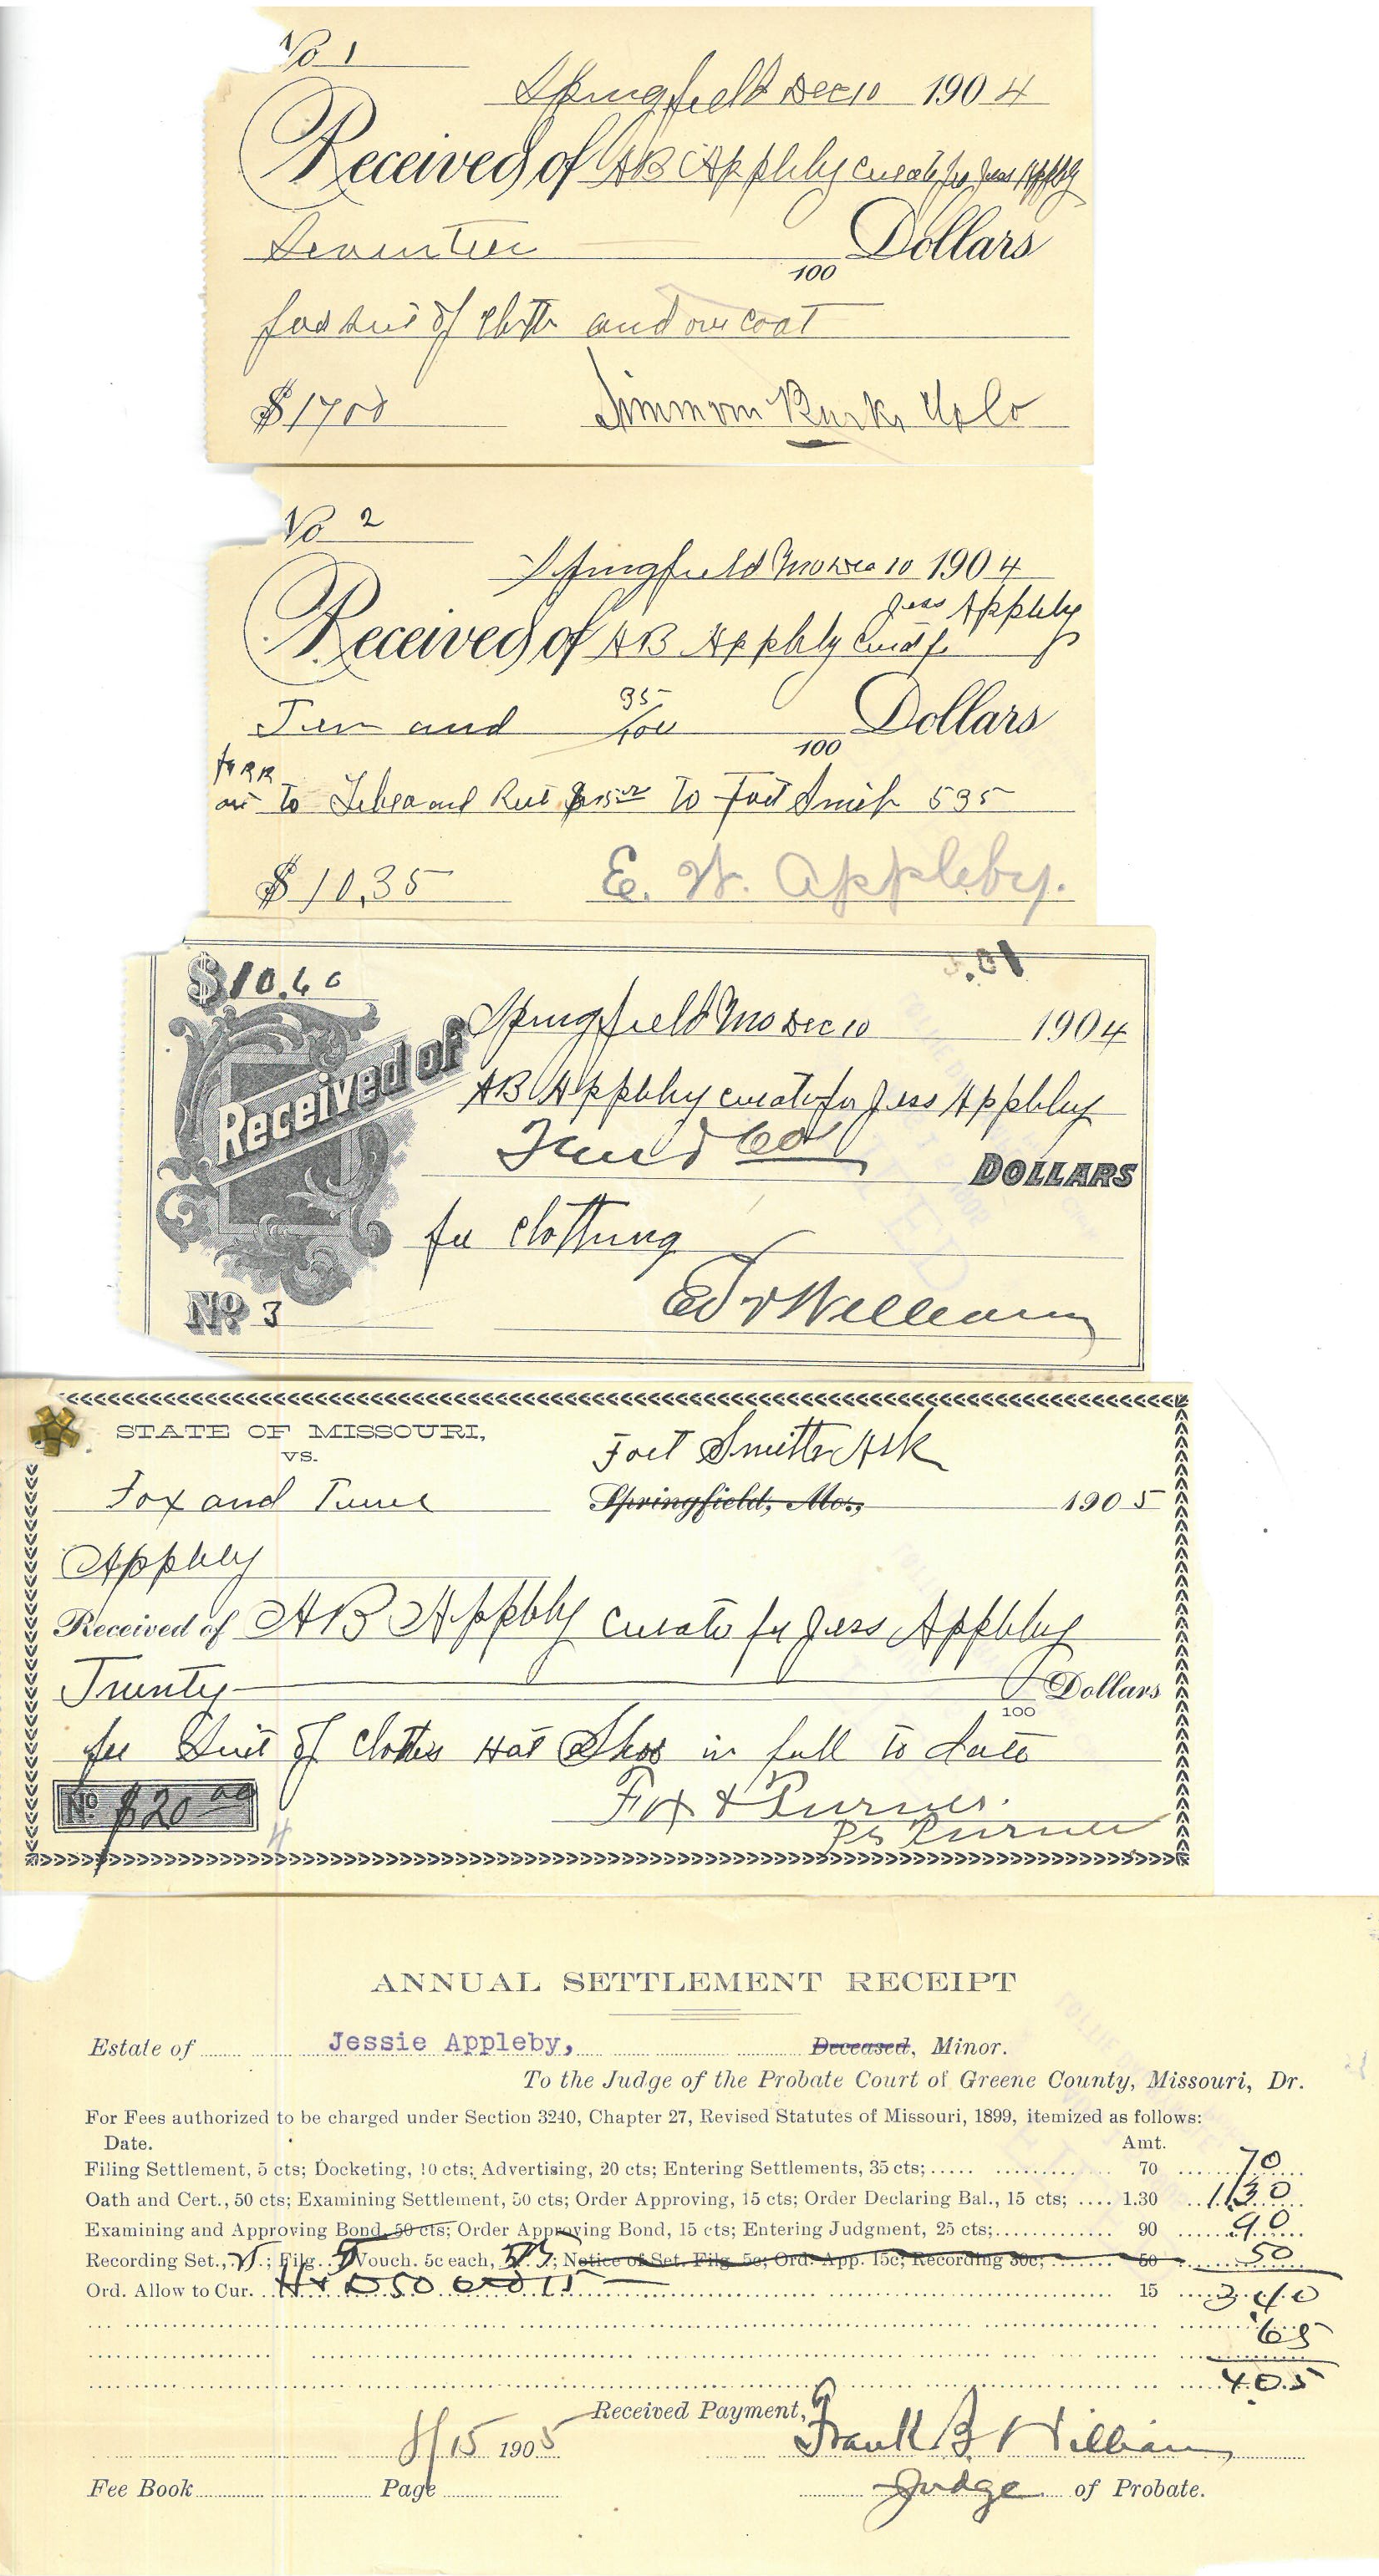 No 1
Springfield Dec 10 1904
Received of AB Appleby Curator for Jess Appleby
Seventeen Dollars
100
for suit of cloth and over coat
$1700
Simmon
No 2
Springfield Mo Dec 10 1904
Jess Appleby
Received of AB Appleby Curat for
Ten and 35/100 Dollars
100
for RR
to and to Fort Smith 535
$10.35 E. W. Appleby.
$10.60
Springfield Mo Dec 10 1904
Received of
AB Appleby curator for Jess Appleby
Ten & 60 DOLLARS
for clothing
No. 3
STATE OF MISSOURI,
VS.
Fort Smith Ark
Fox and Turner Springfield, Mo., 1905
Appleby
Received of AB Appleby Curator for Jess Appleby
Twenty Dollars
100
for Suit of Clothes Hat Shoes in full to date
No. $20 00
Fox & Turner.
Turner
4
ANNUAL SETTLEMENT RECEIPT
Estate of Jessie Appleby, Deceased, Minor.
To the Judge of the Probate Court of Greene County, Missouri, Dr.
For Fees authorized to be charged under Section 3240, Chapter 27, Revised Statutes of Missouri, 1899, itemized as follows:
Date. Amt.
Filing Settlement, 5 cts; Docketing, 10 cts; Advertising, 20 cts; Entering Settlements, 35 cts; 70 70
Oath and Cert., 50 cts; Examining Settlement, 50 cts; Order Approving, 15 cts; Order Declaring Bal., 15 cts; 1.30 130
Examining and Approving Bond, 50 cts; Order Approving Bond, 15 cts; Entering Judgment, 25 cts; 90 90
Recording Set., ; Filg. 5 Vouch. 5c each, ; Notice of Set. Filg. 5c; Ord. App. 15c; Recording 30c; 50 50
Ord. Allow to Cur. 15 340
65
405
Received Payment,
8/15 1905 Frank B Williams
Fee Book Page Judge of Probate.